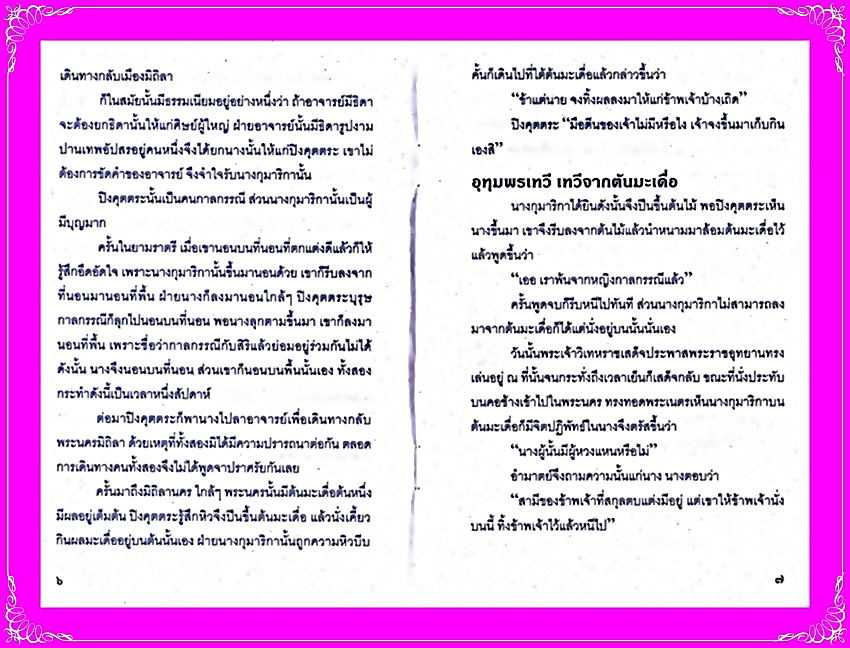 เดินทางกลับเมืองมิถิลา
ก็ในสมัยนั้นมีธรรมเนียมอยู่อย่างหนึ่งว่า ถ้าอาจารย์มีธิดา
จะต้องยกธิดานั้นให้แก่ศิษย์ผู้ใหญ่ ฝ่ายอาจารย์นั้นมีธิดารูปงาม
ปานเทพอัปสรอยู่คนหนึ่งจึงได้ยกนางนั้นให้แก่ปิงคุตตระ เขาไม่
ต้องการขัดคำของอาจารย์ จึงจำใจรับนางกุมาริกานั้น
ปิงคุตตระนั้นเป็นคนกาลกรรณี ส่วนนางกุมาริกานั้นเป็นผู้
มีบุญมาก
ครั้นในยามราตรี เมื่อเขานอนบนที่นอนที่ตกแต่งดีแล้วก็ให้
รู้สึกอึดอัดใจ เพราะนางกุมาริกานั้นขึ้นมานอนด้วย เขาก็รีบลงจาก
ที่นอนมานอนที่พื้น ฝ่ายนางก็ลงมานอนใกล้ๆ ปิงคุตตระบุรุษ
กาลกรรณีก็ลุกไปนอนบนที่นอน พอนางลุกตามขึ้นมา เขาก็ลงมา
นอนที่พื้น เพราะชื่อว่ากาลกรรณีกับสิริแล้วย่อมอยู่ร่วมกันไม่ได้
ดังนั้น นางจึงนอนบนที่นอน ส่วนเขาก็นอนบนพื้นนั้นเอง ทั้งสอง
กระทำดังนี้เป็นเวลาหนึ่งสัปดาห์
ต่อมาปิงคุตตระก็พานางไปลาอาจารย์เพื่อเดินทางกลับ
พระนครมิถิลา ด้วยเหตุที่ทั้งสองมิได้มีความปรารถนาต่อกัน ตลอด
การเดินทางคนทั้งสองจึงไม่ได้พูดจาปราศรัยกันเลย
ครั้นมาถึงมิถิลานคร ใกล้ๆ พระนครนั้นมีต้นมะเดื่อต้นหนึ่ง
มีผลอยู่เต็มต้น ปิงคุตตระรู้สึกหิวจึงปีนขึ้นต้นมะเดื่อ แล้วนั่งเคี้ยว
กินผลมะเดื่ออยู่บนต้นนั้นเอง ฝ่ายนางกุมาริกานั้นถูกความหิวบีบ
๖
คั้นก็เดินไปที่ใต้ต้นมะเดื่อแล้วกล่าวขึ้นว่า
“ข้าแต่นาย จงทิ้งผลลงมาให้แก่ข้าพเจ้าบ้างเถิด”
ปิงคุตตระ “มือตีนของเจ้าไม่มีหรือไง เจ้าจงขึ้นมาเก็บกิน
เองสิ”
อุทุมพรเทวี เทวีจากต้นมะเดื่อ
นางกุมาริกาได้ยินดังนั้นจึงปีนขึ้นต้นไม้ พอปิงคุตตระเห็น
นางขึ้นมา เขาจึงรีบลงจากต้นไม้แล้วนำหนามมาล้อมต้นมะเดื่อไว้
แล้วพูดขึ้นว่า
“เออ เราพ้นจากหญิงกาลกรรณีแล้ว”
ครั้นพูดจบก็รีบหนีไปทันที ส่วนนางกุมาริกาไม่สามารถลง
มาจากต้นมะเดื่อก็ได้แต่นั่งอยู่บนนั้นนั่นเอง
วันนั้นพระเจ้าวิเทหราชเสด็จประพาสพระราชอุทยานทรง
เล่นอยู่ ณ ที่นั้นจนกระทั่งถึงเวลาเย็นก็เสด็จกลับ ขณะที่นั่งประทับ
บนคอช้างเข้าไปในพระนคร ทรงทอดพระเนตรเห็นนางกุมาริกาบน
ต้นมะเดื่อก็มีจิตปฏิพัทธ์ในนางจึงตรัสขึ้นว่า
“นางผู้นั้นมีผู้หวงแหนหรือไม่”
อำมาตย์จึงถามความนั้นแก่นาง นางตอบว่า
“สามีของข้าพเจ้าที่สกุลตบแต่งมีอยู่ แต่เขาให้ข้าพเจ้านั่ง
บนนี้ ทิ้งข้าพเจ้าไว้แล้วหนีไป”
๗